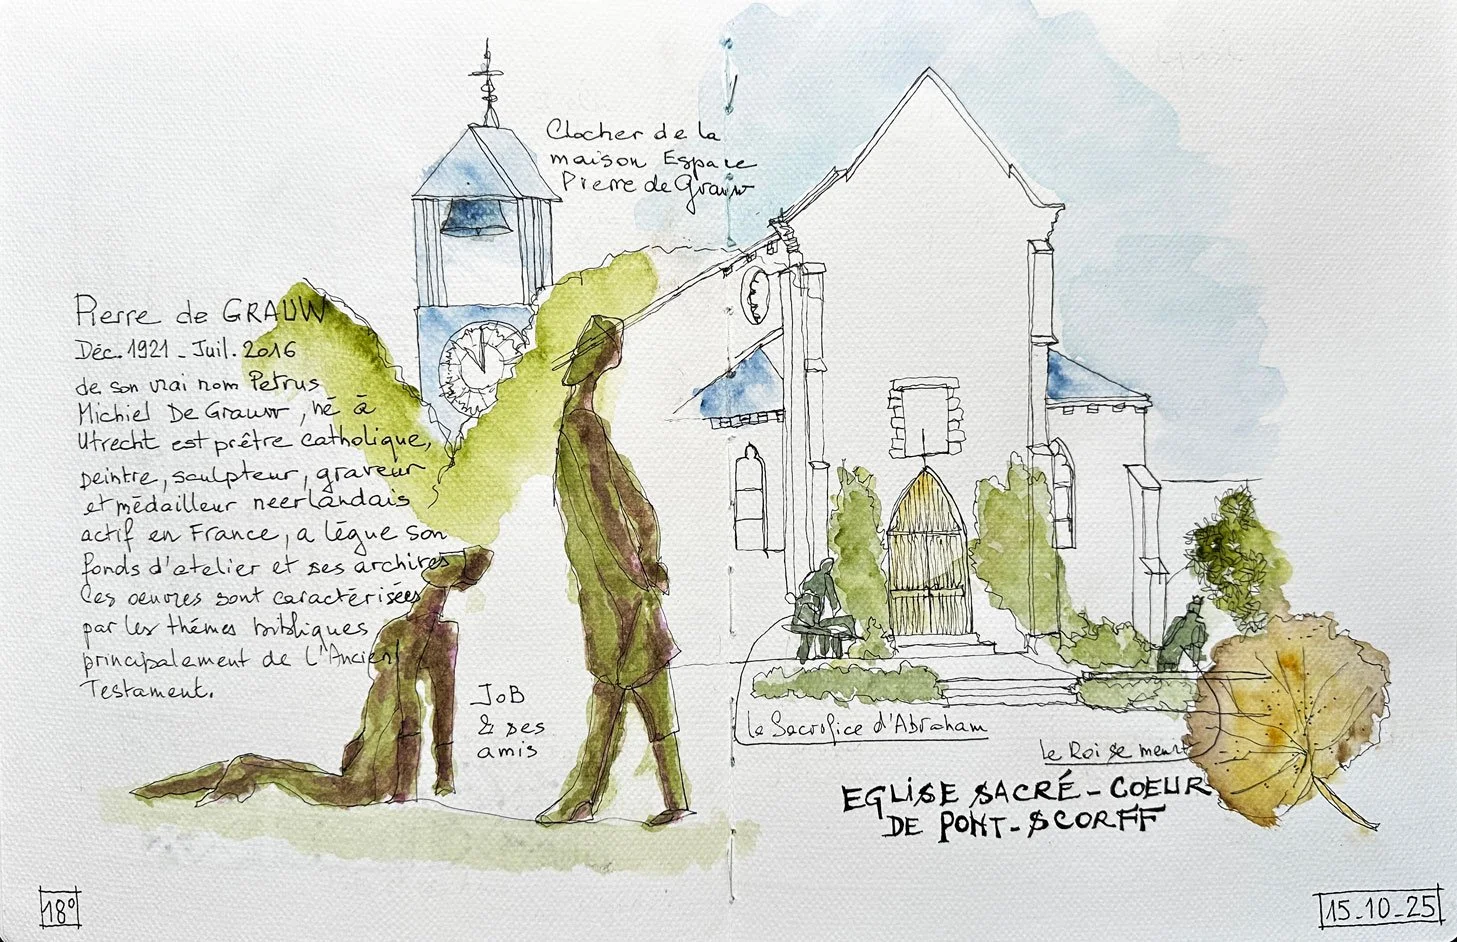 Clocher de la
maison Espace
Pierre de Grauw
Pierre de GRAUW
Déc. 1921 - Juil. 2016
de son vrai nom Petrus
Michiel De Grauw, né à
Utrecht est prêtre catholique,
peintre, sculpteur, graveur
et médailleur neerlandais
actif en France, a légué son
fonds d'atelier et ses archives
Ces oeuvres sont caractérisées
par les thémes bibliques
principalement de l'Ancien
Testament.
JoB
& ses
amis
le Sacrifice d'Abraham
le Roi se meurt
EGLISE SACRÉ-COEUR
DE PONT-SCORFF
18°
15-10-25